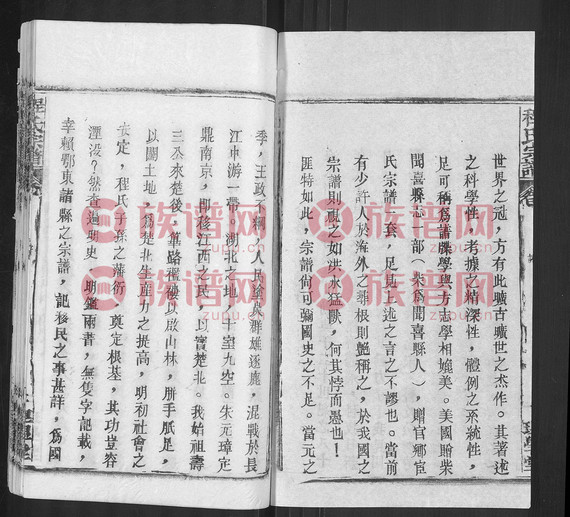 程氏宗譜
世界之冠，方有此曠古曠世之杰作。其著述
之科學性，考據之精深性，體例之系統性，
足可稱爲譜牒學與方志學相媲美。美國贈柴
聞喜縣志一部（柴爲聞喜縣人），贈官鄉宦
氏宗譜一套，足見上述之言之不謬也。當前
有少許人於海外之尋根則艷稱之，於我國之
宗譜則視之如洪水猛獸，何其悖而愚也！
匪特如此，宗譜尚可彌國史之不足。當元之
季，王政不綱，人民塗炭群雄逐鹿，混戰於長
江中游一帶，湖北之地，十室九空。朱元璋定
鼎南京，則移江西之民，以實楚北。我始祖壽
三公來楚後，篳路襤褸以啟山林，胼手胝足，
以闢土地，爲楚北生産力之提高，明初社會之
安定，程氏子孫之蕃衍，奠定根基，其功豈容
湮没？然查過明史、明鑑兩書，無隻字記載，
幸賴鄂東諸縣之宗譜，記移民之事甚詳，爲國
程氏宗譜
族谱网
zupu.cn
族谱网
zupu.cn